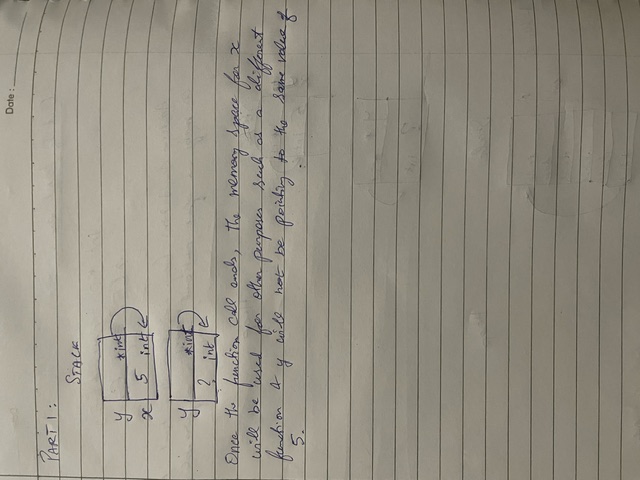 Date :
PART 1 :
STACK
y *int
x 5 int
y *int
? int
Once the function call ends, the memory space for x
will be used for other purposes such as a different
function & y will not be pointing to the same value of
5.